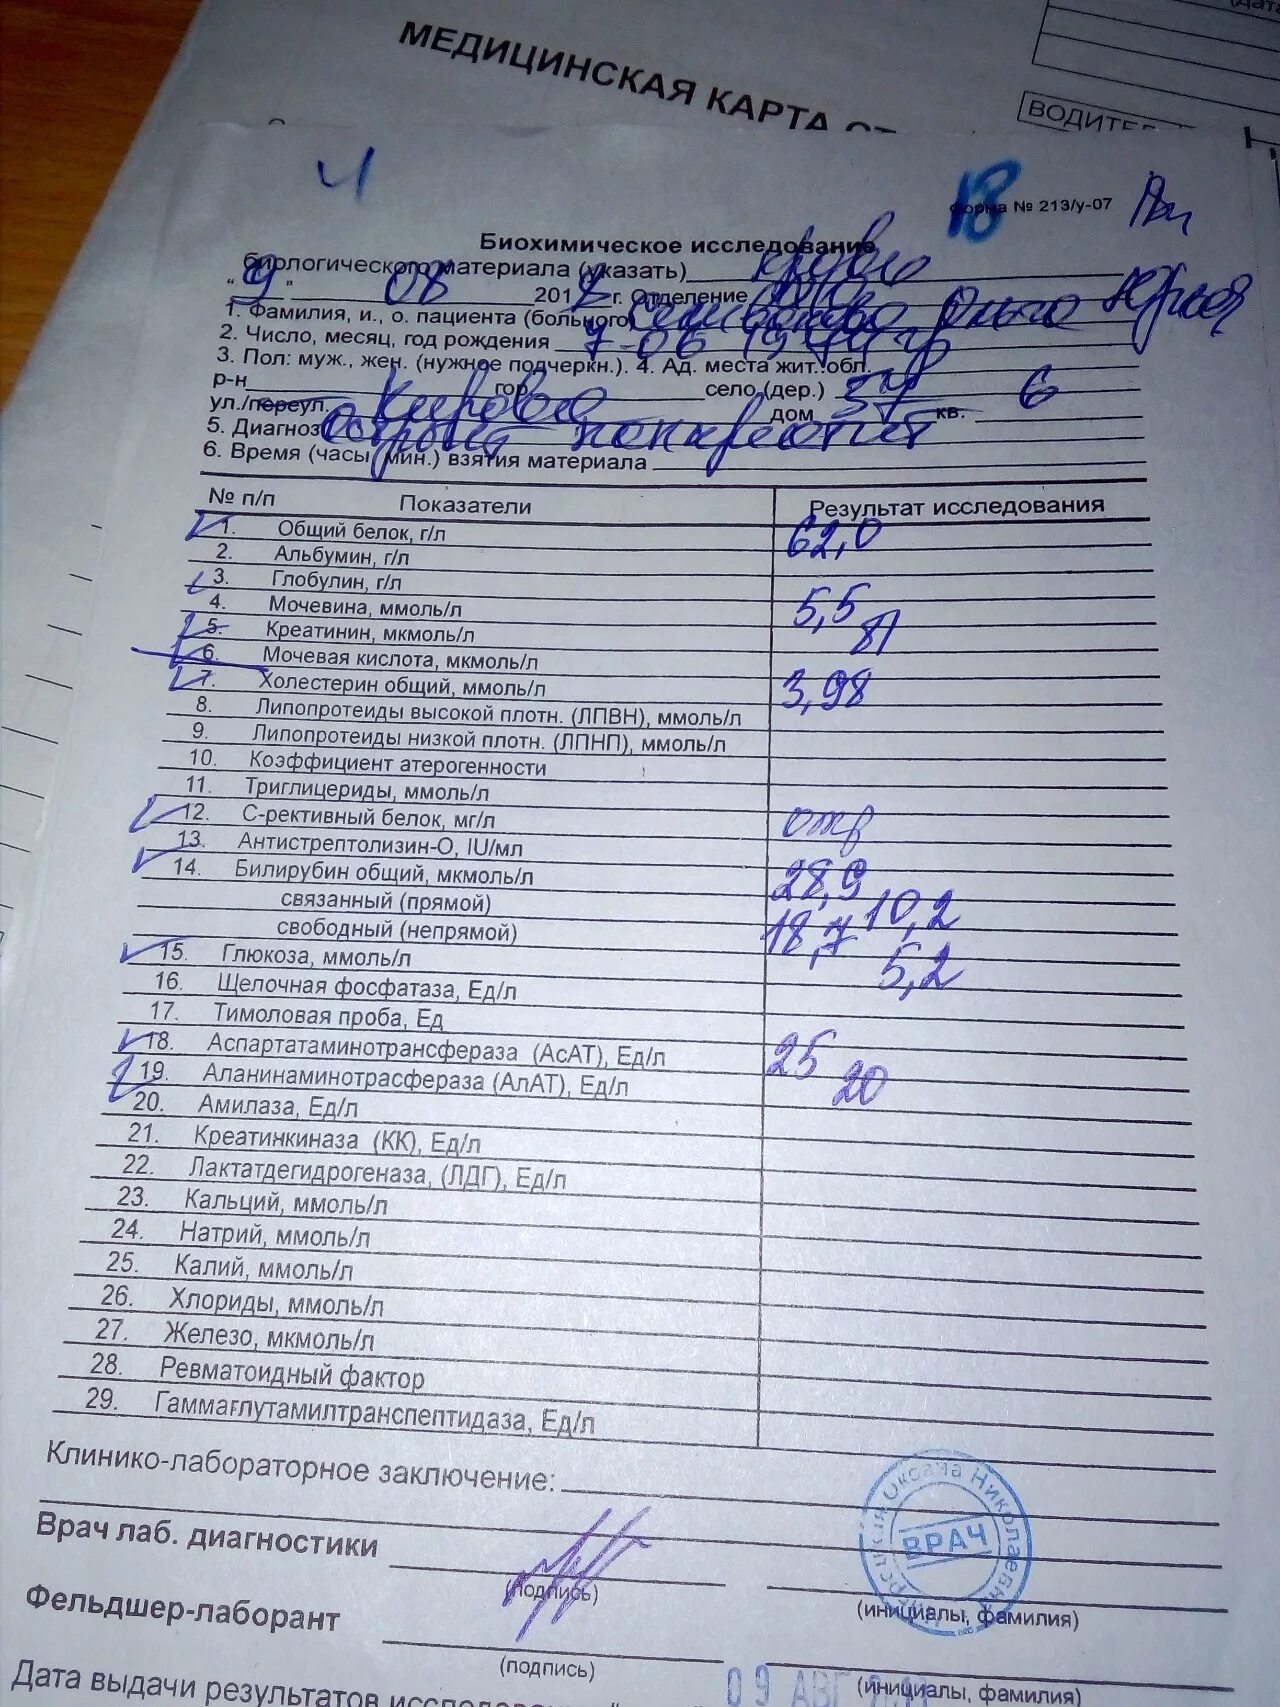 МЕДИЦИНСКАЯ КАРТА
ВОДИТЕ
Ч
18
Форма № 213/у-07
Биохимическое исследование
биологического материала (указать) кровь
" 9 " 08 2018 г. Отделение
1. Фамилия, и., о. пациента (больного) Ольга Юрьев
2. Число, месяц, год рождения 7-06
3. Пол: муж., жен. (нужное подчеркн.). 4. Ад. места жит.:обл.
р-н гор село (дер.)
ул./переул. Кирова дом 37 кв. 6
5. Диагноз острый панкреатит
6. Время (часы, мин.) взятия материала
№ п/п Показатели Результат исследования
1. Общий белок, г/л 62,0
2. Альбумин, г/л
3. Глобулин, г/л
4. Мочевина, ммоль/л 5,5
5. Креатинин, мкмоль/л 81
6. Мочевая кислота, мкмоль/л
7. Холестерин общий, ммоль/л 3,98
8. Липопротеиды высокой плотн. (ЛПВН), ммоль/л
9. Липопротеиды низкой плотн. (ЛПНП), ммоль/л
10. Коэффициент атерогенности
11. Триглицериды, ммоль/л
12. С-рективный белок, мг/л отр
13. Антистрептолизин-О, IU/мл
14. Билирубин общий, мкмоль/л 28,9
связанный (прямой) 10,2
свободный (непрямой) 18,7
15. Глюкоза, ммоль/л 5,2
16. Щелочная фосфатаза, Ед/л
17. Тимоловая проба, Ед
18. Аспартатаминотрансфераза (АсАТ), Ед/л 25
19. Аланинаминотрасфераза (АлАТ), Ед/л 20
20. Амилаза, Ед/л
21. Креатинкиназа (КК), Ед/л
22. Лактатдегидрогеназа, (ЛДГ), Ед/л
23. Кальций, ммоль/л
24. Натрий, ммоль/л
25. Калий, ммоль/л
26. Хлориды, ммоль/л
27. Железо, мкмоль/л
28. Ревматоидный фактор
29. Гаммаглутамилтранспептидаза, Ед/л
Клинико-лабораторное заключение:
Врач лаб. диагностики
(подпись) (инициалы, фамилия)
Оксана Николаевна
ВРАЧ
Фельдшер-лаборант
(подпись) (инициалы, фамилия)
Дата выдачи результатов исследован
09 АВГ